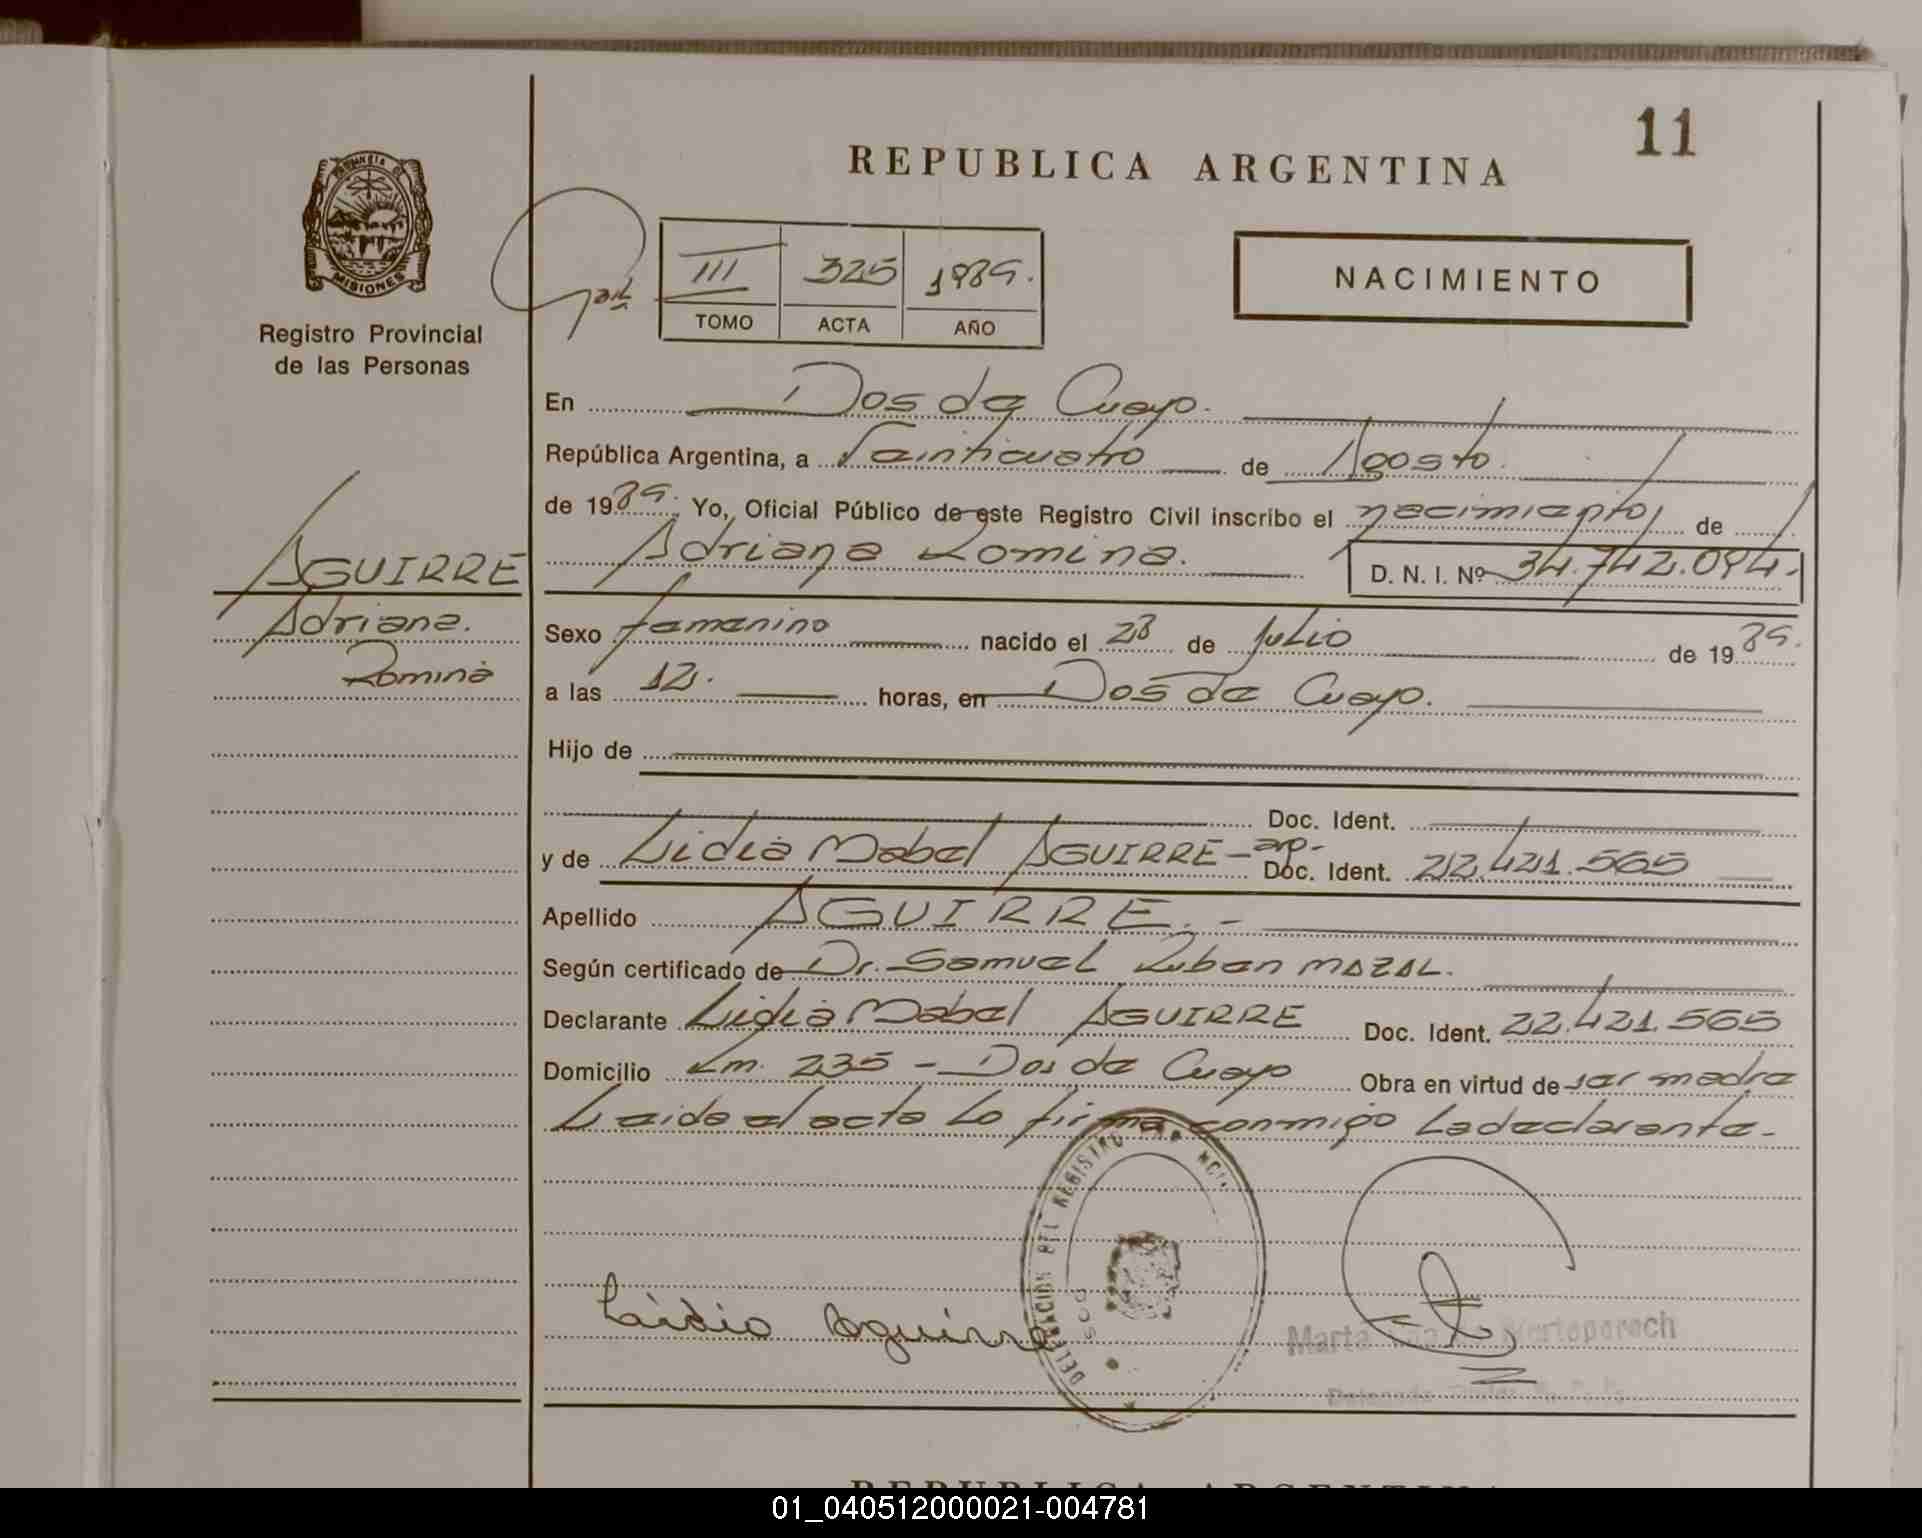 11
REPUBLICA ARGENTINA
PROVINCIA DE
MISIONES
Registro Provincial
de las Personas
III 325 1989.
TOMO ACTA AÑO
NACIMIENTO
En Dos de Mayo.
República Argentina, a Veinticuatro de Agosto.
de 1989. Yo, Oficial Público de este Registro Civil inscribo el nacimiento de
Adriana Romina. D. N. I. Nº 34.742.094.
AGUIRRE
Adriana.
Romina
Sexo femenino nacido el 28 de Julio de 1989.
a las 12. horas, en Dos de Mayo.
Hijo de
Doc. Ident.
y de Lidia Mabel AGUIRRE - arg.- Doc. Ident. 22.421.565
Apellido AGUIRRE.-
Según certificado de Dr. Samuel Ruben MAZAL.
Declarante Lidia Mabel AGUIRRE Doc. Ident. 22.421.565
Domicilio Km. 235 - Dos de Mayo Obra en virtud de ser madre
Leida el acta lo firma conmigo la declarante-
DELEGACION DEL REGISTRO
DOS
Lidia Aguirre
Marta
REPUBLICA ARGENTINA
01_040512000021-004781